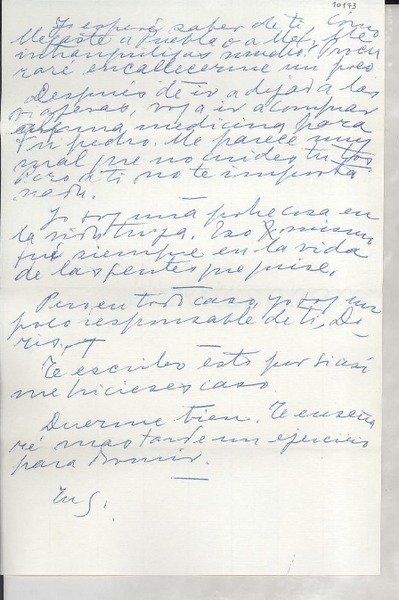 10193
Yo esperé saber de ti. Cómo
llegaste a Puebla o a Mex. Me
intranquilizas mucho. Procu
raré encallecerme un poco
Después de ir a dejar a las
viajeras, voy a ir a comprar
alguna medicina para
tu pedro. Me parece muy
mal que no cuides tu tos
Pero a ti no te importa
nada.
Yo soy una pobre cosa en
la vida tuya. Eso mismo
fué siempre en la vida
de las gentes que quise.
Pero en todo caso, yo soy un
poco responsable de ti, Do-
ris.
Te escribo esto por si así
me hicieses caso.
Duerme bien. Te enseña
ré mas tarde un ejercicio
para dormir.
Tu G.